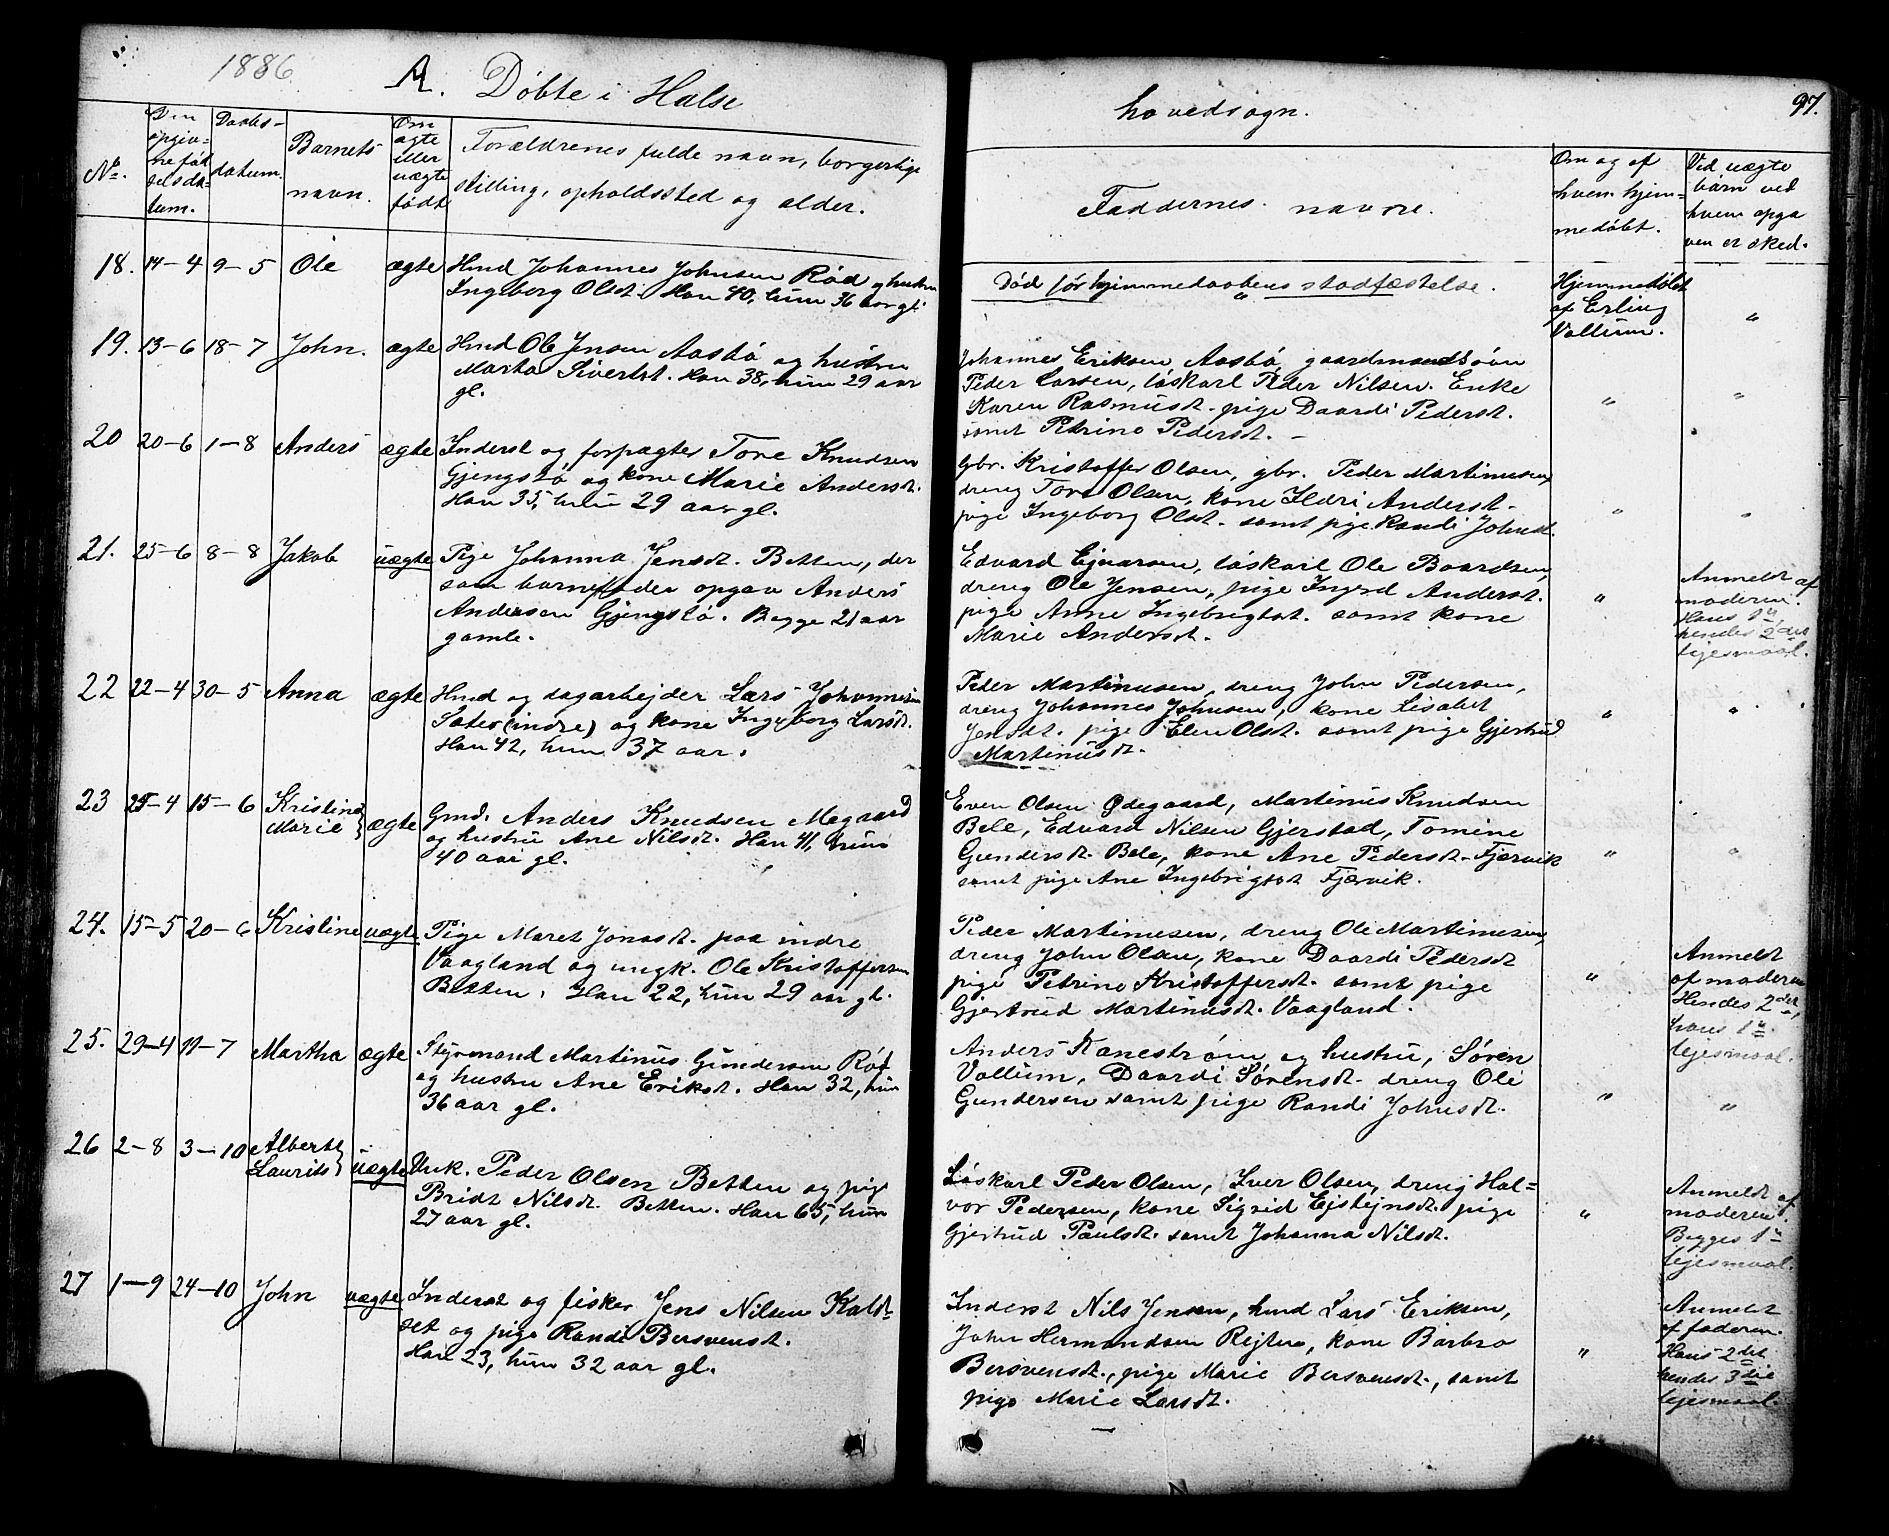 1886. A. Døbte i Halse hovedsogn. 97.
No.
Den opgiv-
ne fød
selsda-
tum.
Daabs-
datum.
Barnets
navn.
Om
ægte
eller
uægte
født
Forældrenes fulde navn, borgerlige
stilling, opholdssted og alder.
Faddernes navne.
Om og af
hvem hjem-
medøbt.
Ved uægte
børn ved
hvem opga
ven er sked.
18. 14-4 9-5 Ole ægte Hmd Johannes Johnsen Rød og hustru
Ingeborg Olsdt. Han 40, hun 36 aar gl.
Død før hjemmedaabens stadfæstelse.
Hjemmedøbt
af Erling
Vollum.
"
19. 13-6 18-7 John. ægte Hmd Ole Jensen Aasbø og hustru
Marta Sivertst. Han 38, hun 29 aar
gl.
Johannes Eriksen Aasbø, gaardmandssøn
Peder Larsen, løskarl Peder Nilsen. Enke
Karen Rasmusdt. pige Daardi Pedersdt.
samt Petrine Pedersdt. -
" "
20 20-6 1-8 Anders ægte Inderst og forpagter Tore Knudsen
Gjengstø og kone Marie Andersdt.
Han 35, hun 29 aar gl.
Gbr. Kristoffer Olsen, gbr. Peder Martinusen,
dreng Tore Olsen, kone Ildri Andersdt.
pige Ingeborg Olsdt. samt pige Randi Johnsdt.
" "
21. 25-6 8-8 Jakob uægte Pige Johanna Jensdt. Betten, der
som barnefader opgav Anders
Andersen Gjengstø. Begge 21 aar
gamle.
Edvard Ejnarsen, løskarl Ole Baardsen,
dreng Ole Jensen, pige Ingrd Andersdt.
pige Anne Ingebrigtsdt. samt kone
Marie Andersdt.
"
Anmeldt af
moderen.
Hans 1te
hendes 2det
lejesmaal.
22 22-4 30-5 Anna ægte Hmd og dagarbejder Lars Johannesen
Sæter (indre) og kone Ingeborg Larsdt.
Han 42, hun 37 aar.
Peder Martinusen, dreng John Pedersen,
dreng Johannes Johnsen, kone Lisabet
Jensdt. pige Elen Olsdt. samt pige Gjertrud
Martinusdt.
" "
23 25-4 15-6 Kristine
Marie } ægte Gmd. Anders Knudsen Megaard
og hustru Ane Nilsdt. Han 41, hun
40 aar gl.
Even Olsen Ødegaard, Martinus Knudsen
Bele, Edvard Nilsen Gjerstad, Tomine
Gundersdt. Bele, kone Ane Pedersdt. Fjærvik
samt pige Ane Ingebrigtsdt Fjærvik.
" "
24. 15-5 20-6 Kristine uægte Pige Maret Jonasdt. paa indre
Vaagland og ungk. Ole Kristoffersen
Betten. Han 22, hun 29 aar gl.
Peder Martinusen, dreng Ole Martinusen,
dreng John Olsen, kone Daardi Pedersdt
pige Petrine Kristoffersdt. samt pige
Gjertrud Martinusdt. Vaagland.
"
Anmeldt
af moderen
Hendes 2det,
hans 1te
lejesmaal.
25. 29-4 11-7 Martha ægte Styrmand Martinus Gundersen Røt
og hustru Ane Eriksdt. Han 32, hun
36 aar gl.
Anders Kanestrøm og hustru, Søren
Vollum, Daardi Sørensdt. dreng Ole
Gundersen samt pige Randi Johnsdt.
" "
26 2-8 3-10 Albert
Laurits } uægte Unk. Peder Olsen Betten og pige
Bridt Nilsdt. Betten. Han 65, hun
27 aar gl.
Løskarl Peder Olsen, Iver Olsen, dreng Hal-
vor Pedersen, kone Sigrid Ejstejnsdt. pige
Gjertrud Paulsdt. samt Johanna Nilsdt.
"
Anmeldt af
moderen.
Begges 1te
lejesmaal.
27 1-9 24-10 John uægte Inderst og fisker Jens Nilsen Kald-
set og pige Randi Bersvensdt.
Han 23, hun 32 aar gl.
Inderst Nils Jensen, hmd Lars Eriksen,
John Hermandsen Rejten, kone Barbro
Bersvensdt., pige Marie Bersvensdt., samt
pige Marie Larsdt.
"
Anmeldt
af faderen.
Hans 2det
hendes 3die
lejesmaal.